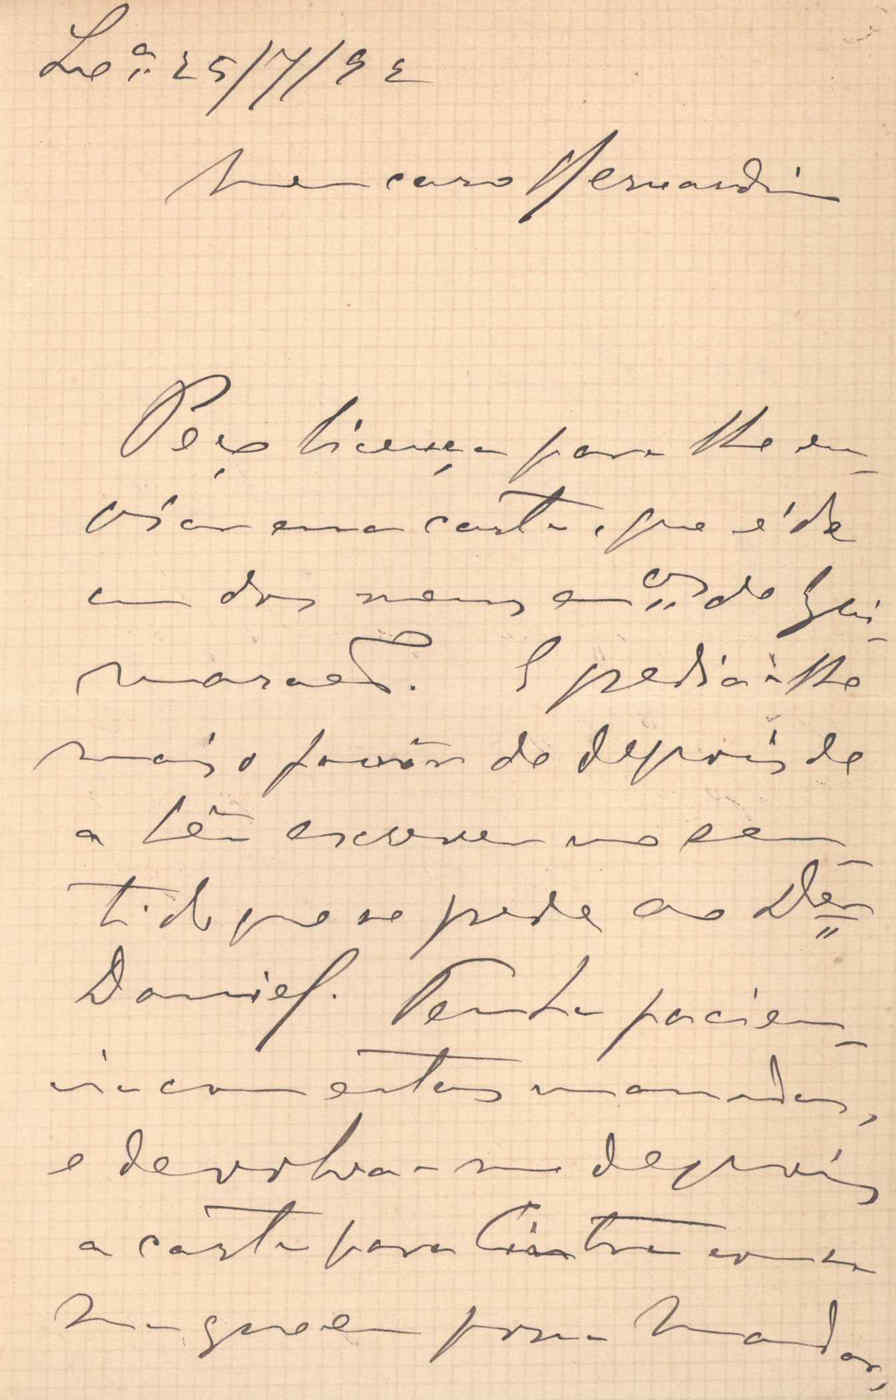 Lxª 25/7/92
Meu caro Bernardin
Peço licença para lhe en-
viar uma carta, que é de
um dos meus amºs de Gui-
marães. E pedia-lhe
mais o favôr de depois de
a lêr escrever no sen-
tido que se pede ao Dºr
Daniel. Tenha pacien-
cia com estas massadas,
e devolva-me depois
a carta para Cintra com
 que eu possa mandar,